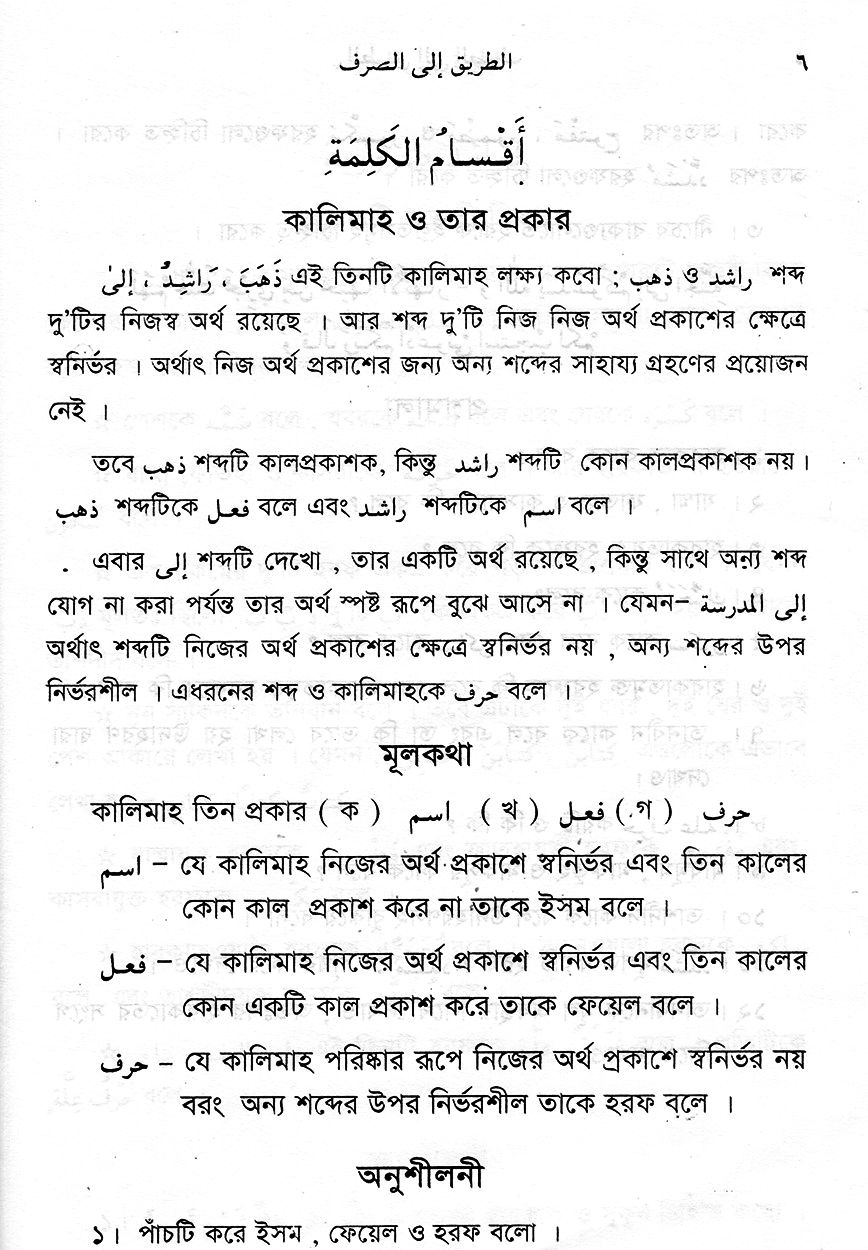 الطريق إلى الصرف ٦
أَقْسَامُ الكَلِمَةِ
কালিমাহ ও তার প্রকার
ذَهَبَ ، رَاشِدٌ ، إلىٰ এই তিনটি কালিমাহ লক্ষ্য কবো ; ذهب ও راشد শব্দ
দু'টির নিজস্ব অর্থ রয়েছে । আর শব্দ দু'টি নিজ নিজ অর্থ প্রকাশের ক্ষেত্রে
স্বনির্ভর । অর্থাৎ নিজ অর্থ প্রকাশের জন্য অন্য শব্দের সাহায্য গ্রহণের প্রয়োজন
নেই ।
তবে ذهب শব্দটি কালপ্রকাশক, কিন্তু راشد শব্দটি কোন কালপ্রকাশক নয় ।
ذهب শব্দটিকে فعل বলে এবং راشد শব্দটিকে اسم বলে ।
এবার إلى শব্দটি দেখো , তার একটি অর্থ রয়েছে , কিন্তু সাথে অন্য শব্দ
যোগ না করা পর্যন্ত তার অর্থ স্পষ্ট রূপে বুঝে আসে না । যেমন– إلى المدرسة
অর্থাৎ শব্দটি নিজের অর্থ প্রকাশের ক্ষেত্রে স্বনির্ভর নয় , অন্য শব্দের উপর
নির্ভরশীল । এধরনের শব্দ ও কালিমাহকে حرف বলে ।
মূলকথা
কালিমাহ তিন প্রকার ( ক ) اسم ( খ ) فعل (গ ) حرف
اسم – যে কালিমাহ নিজের অর্থ প্রকাশে স্বনির্ভর এবং তিন কালের
কোন কাল প্রকাশ করে না তাকে ইসম বলে ।
فعل – যে কালিমাহ নিজের অর্থ প্রকাশে স্বনির্ভর এবং তিন কালের
কোন একটি কাল প্রকাশ করে তাকে ফেয়েল বলে ।
حرف – যে কালিমাহ পরিষ্কার রূপে নিজের অর্থ প্রকাশে স্বনির্ভর নয়
বরং অন্য শব্দের উপর নির্ভরশীল তাকে হরফ বলে ।
অনুশীলনী
১। পাঁচটি করে ইসম , ফেয়েল ও হরফ বলো ।